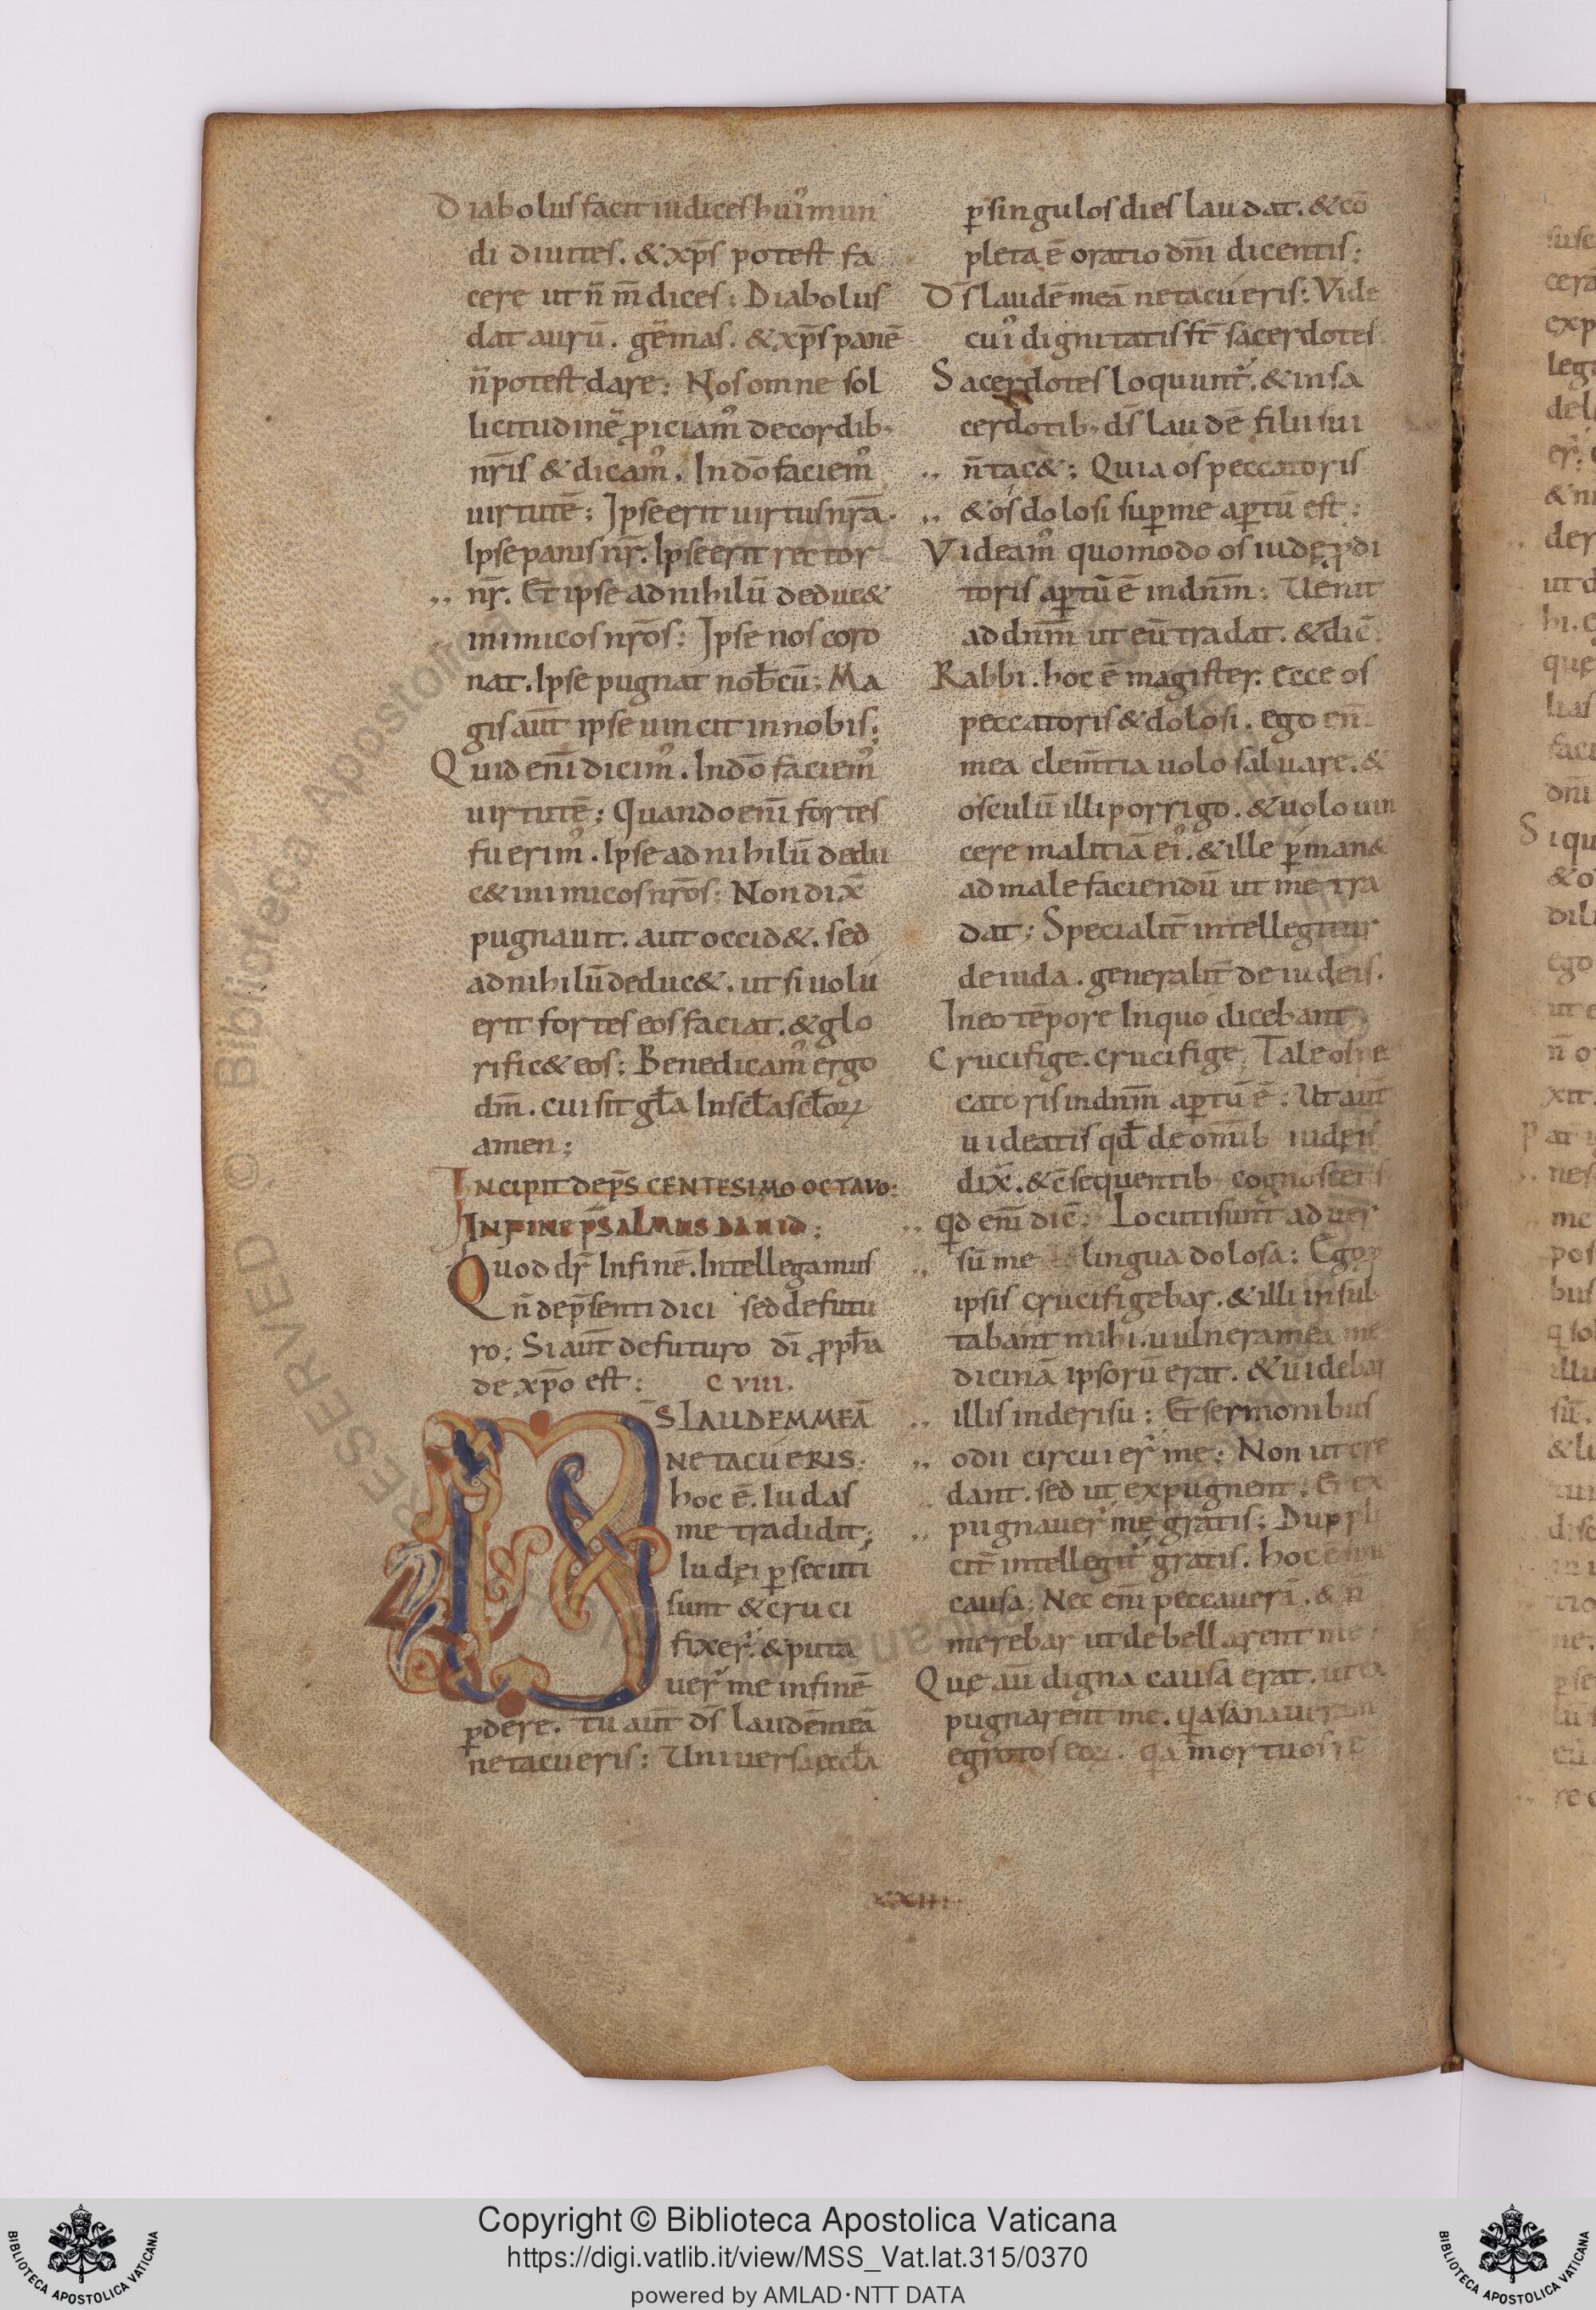 Diabolus facit iudices hui᾽ mun
di diuites. & xp̄s potest fa
cere ut n̄ m̄dices: Diabolus
dat aurū. gēmas. & xp̄s panē
n̄ potest dare: Nos omne sol
licitudinē ꝓiciam᾽ de cordib;
nr̄is & dicam᾽. In dō faciem᾽
uirtutē; Ipse erit uirtus nr̄a.
Ipse panis nr̄. Ipse erit rector
nr̄. Et ipse ad nihilū deduc&
inimicos nrōs: Ipse nos coro
nat. Ipse pugnat nob̄cū; Ma
gis aut̄ ipse uincit in nobis;
Quid eni̅ dicim᾽. In dō faciem᾽
uirtutē; Quando eni̅ fortes
fuerim᾽. Ipse ad nihilū dedu
c& inimicos nrōs: Non dix̄
pugnauit. aut occid&. sed
ad nihilū deduc&. ut si uolu
erit fortes eos faciat. & glo
rific& eos: Benedicam᾽ ergo
dm̄. cui sit gl̄a In scl̄a scl̄oꝝ
amen;
INCIPIT DE PS̄ CENTESIMO OCTAVO:
IN FINE PS̄ALMUS DAUID;
Quod dr̄ In finē. Intellegamus
n̄ de p̄senti dici sed de futu
ro: Si aut̄ de futuro di̅ ꝓph̄a
de xp̄o est: C VIII.
D̄S LAUDEM MEĀ
NE TACUERIS:
hoc ē. Iudas
me tradidit;
Iudei ꝑsecuti
sunt & cruci
fixer̄. & puta
uer̄ me in finē
ꝑdere. tu aut̄ ds̄ laudē meā
ne tacueris: Uniuersa eccl̄a
ꝑ singulos dies laudat. & cō
pleta ē oratio dn̄i dicentis:
D̄s laudē meā ne tacueris: Vide
cui᾽ dignitatis st̄ sacerdotes
Sacerdotes loquunt᾽. & in sa
cerdotib; ds̄ laudē filii sui
n̄ tac&; Quia os peccatoris
& os dolosi sup me aptū est:
Videam᾽ quomodo os iudę ꝓdi
toris aptū ē in dnm̄: Uenit
ad dnm̄ ut eū tradat. & dic̄.
Rabbi. hoc ē magister. Ecce os
peccatoris & dolosi. ego en̄
mea clem̄tia uolo saluare. &
osculū illi porrigo. & uolo uin
cere malitiā ei᾽. & ille ꝑman&
ad male faciendū ut me tra
dat; Specialit̄ intellegitur
de iuda. generalit̄ de iudeis.
In eo tēpore In quo dicebant
Crucifige. crucifige; Tale os pec
catoris in dnm̄ aptū ē: Ut aut̄
uideatis qd̄ de om̄ib iudeis
dix̄. & c̄sequentib; cognoscetis
qd eni̅ dic̄: Locuti sunt aduer
sū me lingua dolosa: Ego p
ipsis crucifigebar. & illi insul
tabant mihi. uulnera mea me
dicinā ipsorū erat. & uidebar
illis in derisu: Et sermonibus
odii circuier̄ me: Non ut cre
dant. sed ut expugnent: Et ex
pugnauer̄ me gratis; Duppli
cit̄ intellegit᾽ gratis. hoc ē sine
causa; Nec eni̅ peccauera̅. & n̄
merebar ut debellarent me;
Quę au̅ digna causa erat. ut ex
pugnarent me. qa sanaueram
egrotos eoꝝ. qa mortuos re
XXIII
Copyright © Biblioteca Apostolica Vaticana
https://digi.vatlib.it/view/MSS_Vat.lat.315/0370
powered by AMLAD·NTT DATA